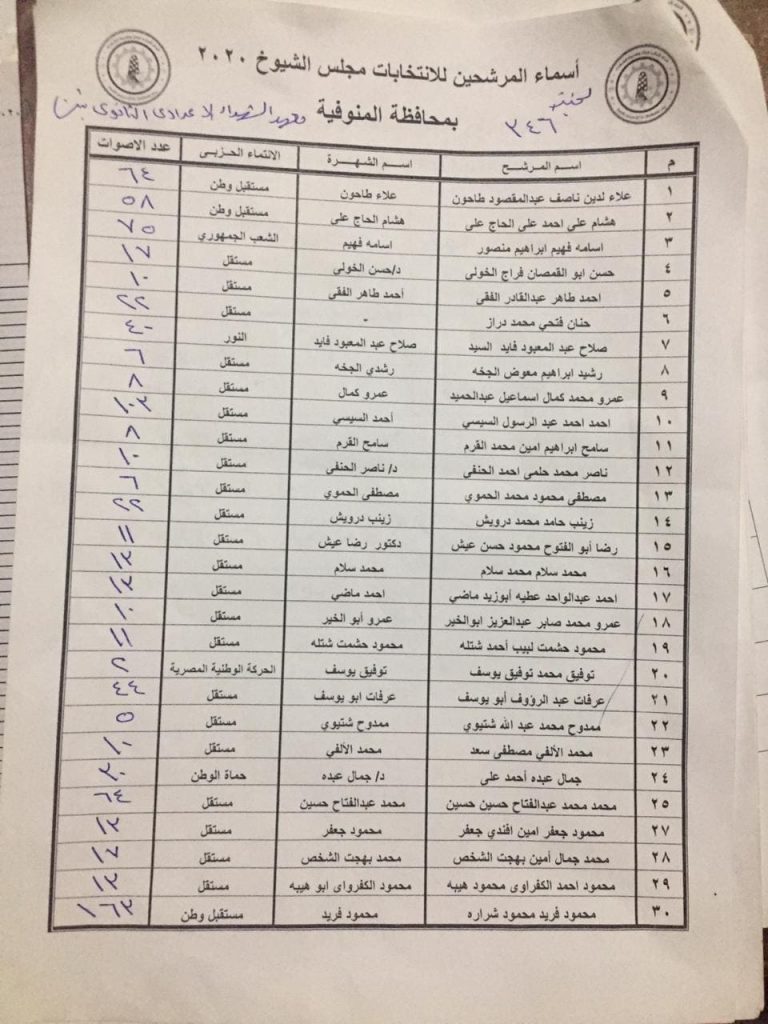 أسماء المرشحين للانتخابات مجلس الشيوخ ٢٠٢٠
بمحافظة المنوفية
لجنة ٣٤٦
معهد الشهداء الاعدادى الثانوى بنين
م اسم المرشح اسم الشهرة الانتماء الحزبى عدد الاصوات
١ علاء لدين ناصف عبدالمقصود طاحون علاء طاحون مستقبل وطن ٦٤
٢ هشام على احمد على الحاج على هشام الحاج على مستقبل وطن ٥٨
٣ اسامه فهيم ابراهيم منصور اسامه فهيم الشعب الجمهوري ٧٥
٤ حسن ابو القمصان فراج الخولى د/حسن الخولى مستقل ١٧
٥ احمد طاهر عبدالقادر الفقى أحمد طاهر الفقى مستقل ١٠
٦ حنان فتحي محمد دراز - مستقل ٢٢
٧ صلاح عبد المعبود فايد السيد صلاح عبد المعبود فايد النور ٤٠
٨ رشيد ابراهيم معوض الجخه رشدي الجخه مستقل ٦
٩ عمرو محمد كمال اسماعيل عبدالحميد عمرو كمال مستقل ٨
١٠ احمد احمد عبد الرسول السيسي أحمد السيسي مستقل ١٠٣
١١ سامح ابراهيم امين محمد القرم سامح القرم مستقل ٨
١٢ ناصر محمد حلمى احمد الحنفى د/ ناصر الحنفى مستقل ١٠
١٣ مصطفى محمود محمد الحموي مصطفى الحموي مستقل ٦
١٤ زينب حامد محمد درويش زينب درويش مستقل ٢٢
١٥ رضا أبو الفتوح محمود حسن عيش دكتور رضا عيش مستقل ١١
١٦ محمد سلام محمد سلام محمد سلام مستقل ١٣
١٧ احمد عبدالواحد عطيه أبوزيد ماضي احمد ماضي مستقل ١٣
١٨ عمرو محمد صابر عبدالعزيز ابوالخير عمرو أبو الخير مستقل ١٠
١٩ محمود حشمت لبيب أحمد شتله محمود حشمت شتله مستقل ١١
٢٠ توفيق محمد توفيق يوسف توفيق يوسف الحركة الوطنية المصرية ٢
٢١ عرفات عبد الرؤوف أبو يوسف عرفات ابو يوسف مستقل ٤٤
٢٢ ممدوح محمد عبد الله شتيوي ممدوح شتيوي مستقل ٥
٢٣ محمد الألفي مصطفى سعد محمد الألفي مستقل ١٠
٢٤ جمال عبده أحمد على د/ جمال عبده حماة الوطن ٣٠
٢٥ محمد محمد عبدالفتاح حسين حسين محمد عبدالفتاح حسين مستقل ٦٤
٢٧ محمود جعفر امين افندي جعفر محمود جعفر مستقل ١٣
٢٨ محمد جمال أمين بهجت الشخص محمد بهجت الشخص مستقل ١٦
٢٩ محمود احمد الكفراوى محمود هيبه محمود الكفرواى ابو هيبه مستقل ١٣
٣٠ محمود فريد محمود شراره محمود فريد مستقبل وطن ١٦٣